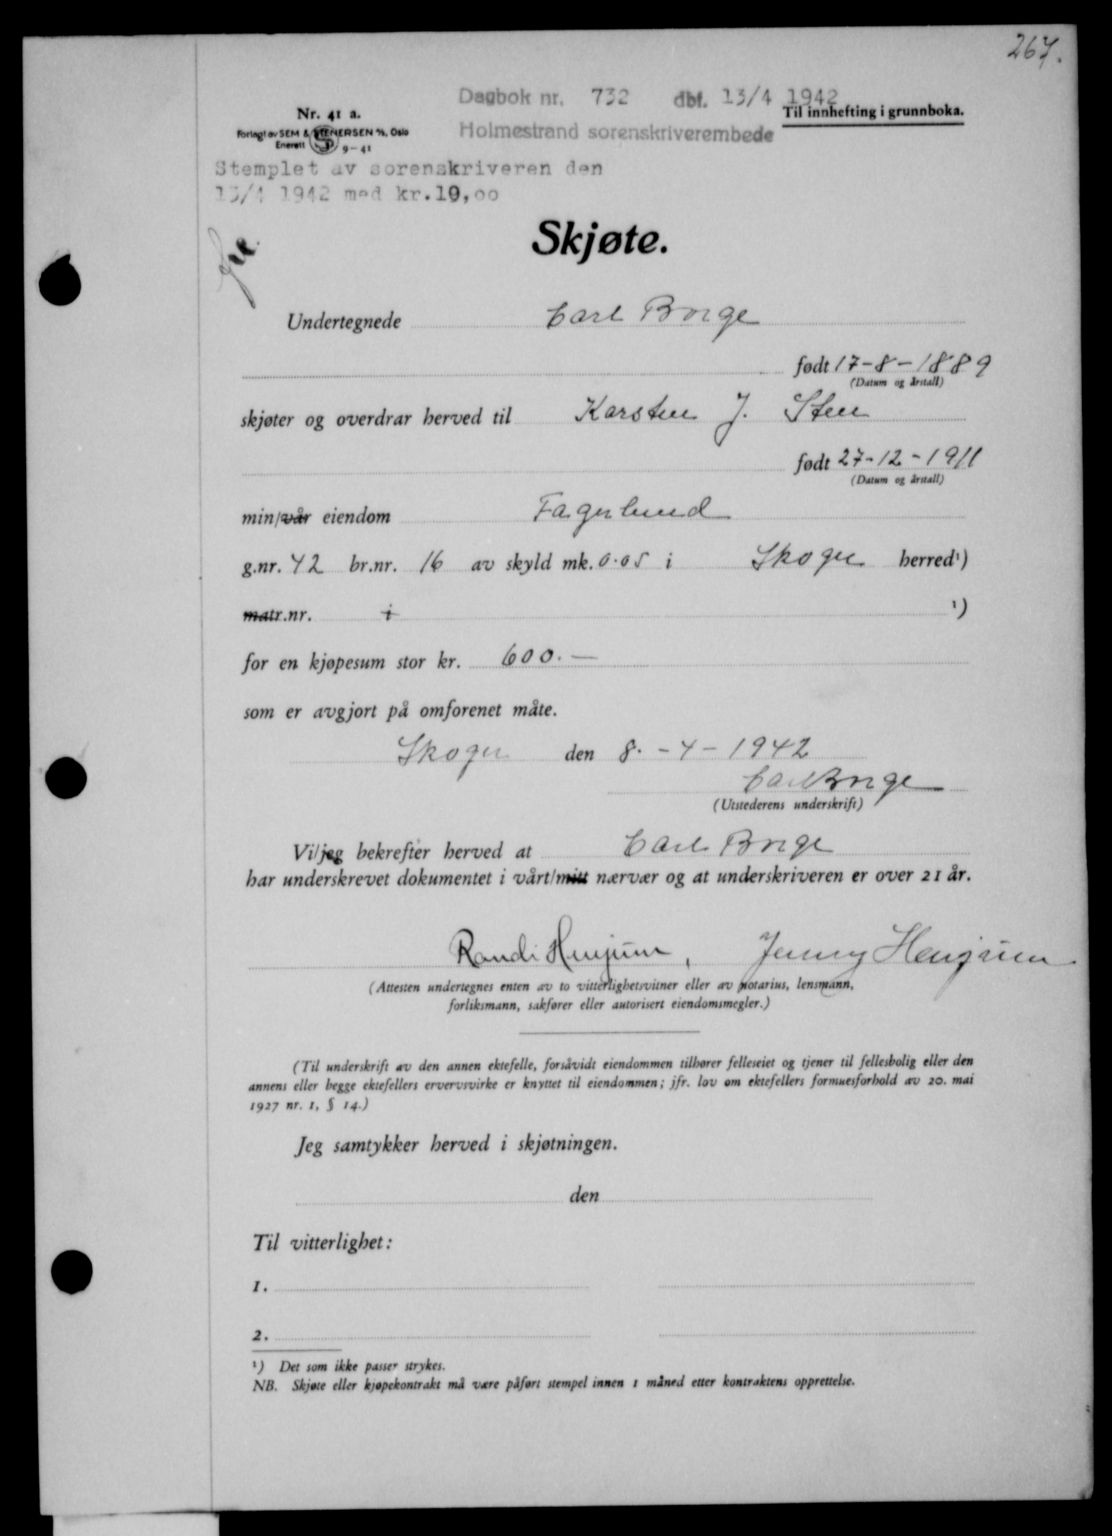 267.
Nr. 41 a.
Forlagt av SEM & STENERSEN A/S, Oslo
Enerett 9-41
Dagbok nr. 732 dbf. 13/4 1942
Til innhefting i grunnboka.
Holmestrand sorenskriverembede
Stemplet av sorenskriveren den
13/4 1942 med kr.10,00
Skjøte.
Undertegnede Carl Borge
født 17-8-1889
(Datum og årstall)
skjøter og overdrar herved til Karsten J. Steen
født 27-12-1911
(Datum og årstall)
min/vår eiendom Fagerlund
g.nr. 42 br.nr. 16 av skyld mk. 0.05 i Skoger herred¹)
matr.nr. i ¹)
for en kjøpesum stor kr. 600.—
som er avgjort på omforenet måte.
Skoger den 8. -4-1942
Carl Borge
(Utstederens underskrift)
Vi/jeg bekrefter herved at Carl Borge
har underskrevet dokumentet i vårt/mitt nærvær og at underskriveren er over 21 år.
Randi Haugum, Jenny Haugum
(Attesten undertegnes enten av to vitterlighetsvitner eller av notarius, lensmann,
forliksmann, sakfører eller autorisert eiendomsmegler.)
(Til underskrift av den annen ektefelle, forsåvidt eiendommen tilhører felleseiet og tjener til fellesbolig eller den
annens eller begge ektefellers ervervsvirke er knyttet til eiendommen; jfr. lov om ektefellers formuesforhold av 20. mai
1927 nr. 1, § 14.)
Jeg samtykker herved i skjøtningen.
den
Til vitterlighet:
1.
2.
¹) Det som ikke passer strykes.
NB. Skjøte eller kjøpekontrakt må være påført stempel innen 1 måned etter kontraktens opprettelse.